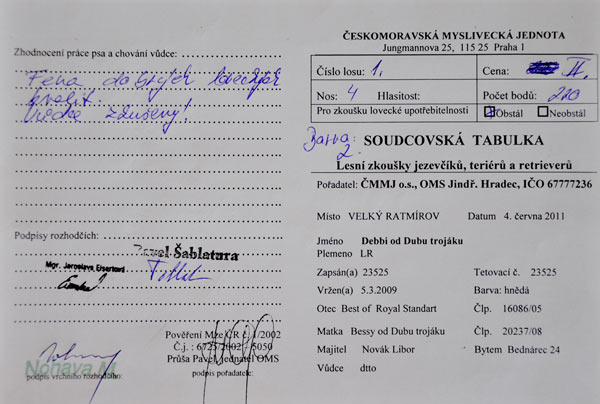 Zhodnocení práce psa a chování vůdce:
Fena dobrých loveckých
kvalit.
Vůdce zdušený!
Podpisy rozhodčích:
Pavel Šablatura
Mgr. Jaroslava Eisertová
Pověření Mze ČR č. 1/2002
Č.j. : 6725/2002 - 5050
Průša Pavel, jednatel OMS
Nohava M
podpis vrchního rozhodčího:
podpis pořadatele:
ČESKOMORAVSKÁ MYSLIVECKÁ JEDNOTA
Jungmannova 25, 115 25 Praha 1
Číslo losu: 1. Cena: II.
Nos: 4 Hlasitost: Počet bodů: 210
Pro zkoušku lovecké upotřebitelnosti Obstál Neobstál
Barva: 2
SOUDCOVSKÁ TABULKA
Lesní zkoušky jezevčíků, teriérů a retrieverů
Pořadatel: ČMMJ o.s., OMS Jindř. Hradec, IČO 67777236
Místo VELKÝ RATMÍROV Datum 4. června 2011
Jméno Debbi od Dubu trojáku
Plemeno LR
Zapsán(a) 23525 Tetovací č. 23525
Vržen(a) 5.3.2009 Barva: hnědá
Otec Best of Royal Standart Člp. 16086/05
Matka Bessy od Dubu trojáku Člp. 20237/08
Majitel Novák Libor Bytem Bednárec 24
Vůdce dtto